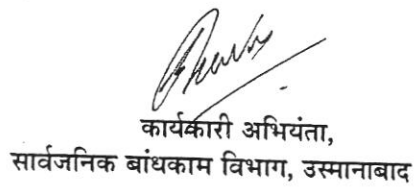 कार्यकारी अभियंता,
सार्वजनिक बांधकाम विभाग, उस्मानाबाद